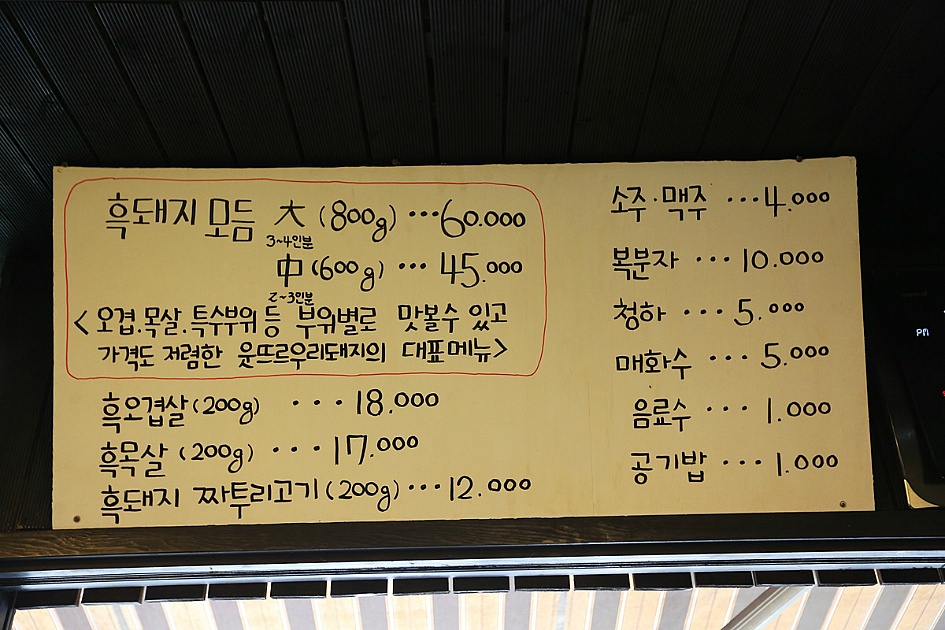 흑돼지 모듬 大 (800g) ··· 60.000
3~4인분
中 (600g) ··· 45.000
2~3인분
<오겹.목살.특수부위 등 부위별로 맛볼수 있고
가격도 저렴한 웃뜨르우리돼지의 대표메뉴>
흑오겹살 (200g) ··· 18.000
흑목살 (200g) ··· 17.000
흑돼지 짜투리고기 (200g) ··· 12.000
소주·맥주 ··· 4.000
복분자 ··· 10.000
청하 ··· 5.000
매화수 ··· 5.000
음료수 ··· 1.000
공기밥 ··· 1.000
PM